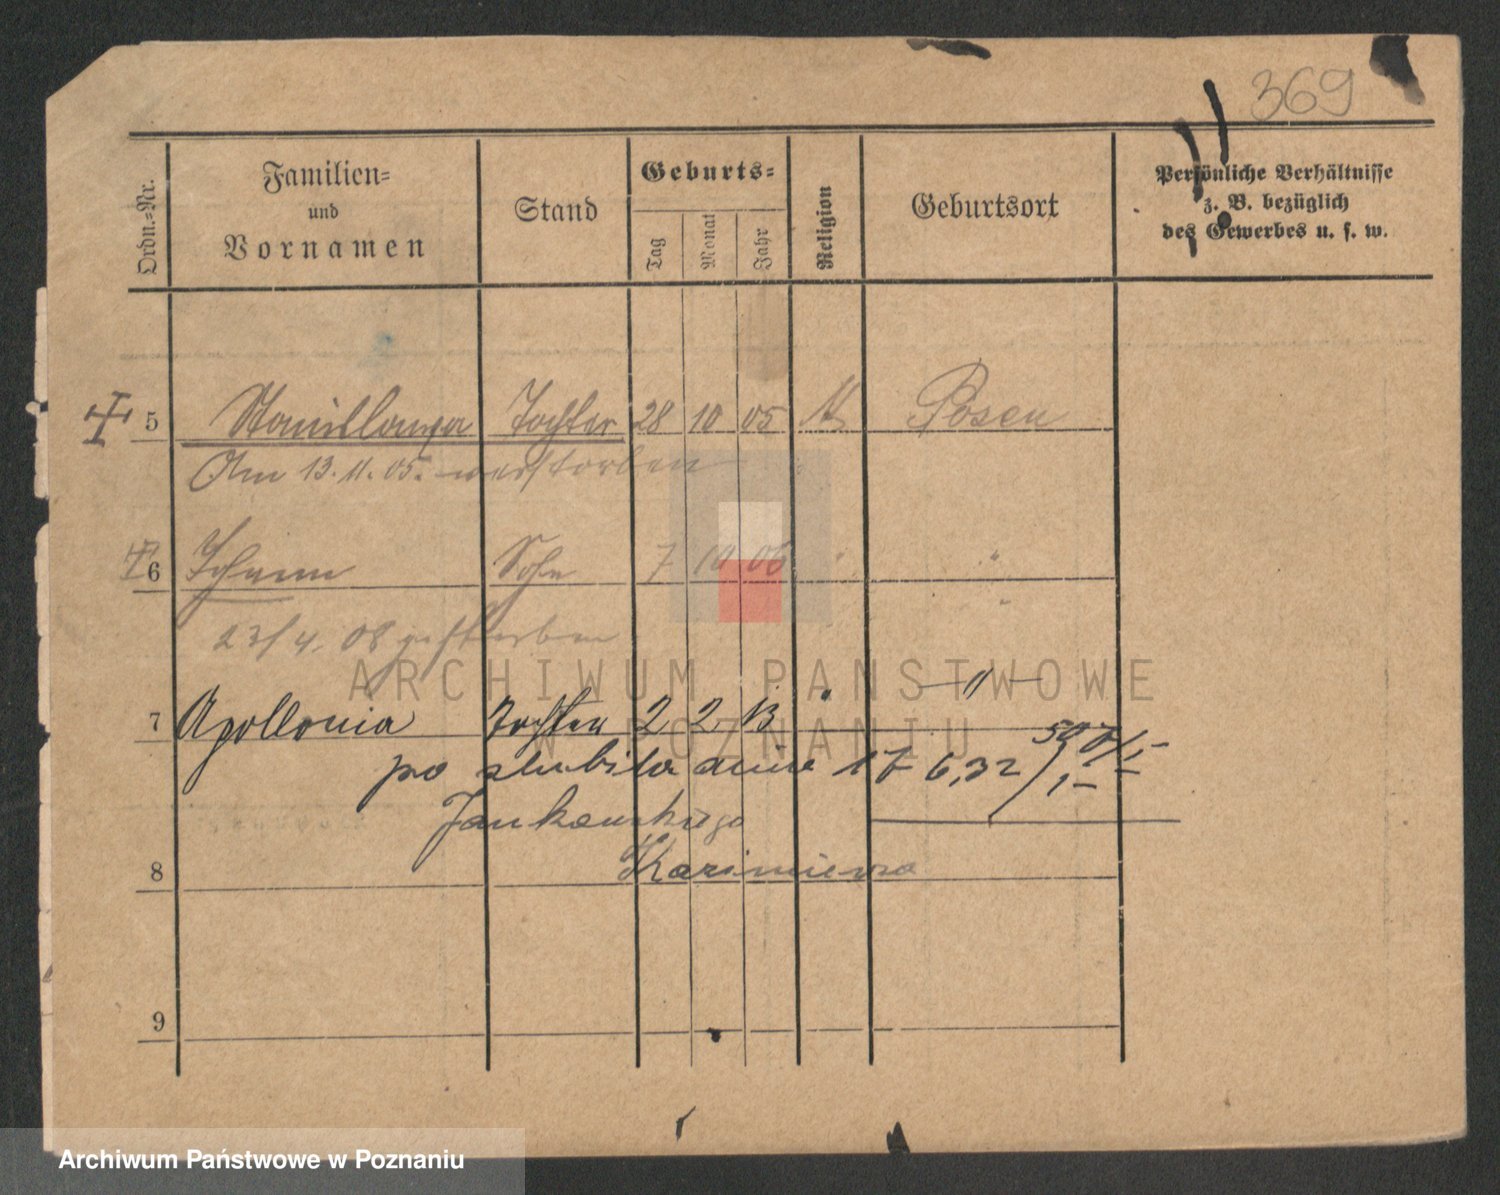 369
Ordn.=Nr.
Familien=
und
Vornamen
Stand
Geburts=
Tag
Monat
Jahr
Religion
Geburtsort
Persönliche Verhältnisse
z. B. bezüglich
des Gewerbes u. s. w.
5 Stanislawa Tochter 28 10 05 Posen
Am 13.11.05. verstorben
6 Johann Sohn 7 10 06 "
23/4. 08 gestorben
7 Apollonia Tochter 2 2 13 " — " —
poslubiła dnia 17 6,32
Jankowskiego
Kazimierza
8
9
ARCHIWUM PAŃSTWOWE
W POZNANIU
Archiwum Państwowe w Poznaniu